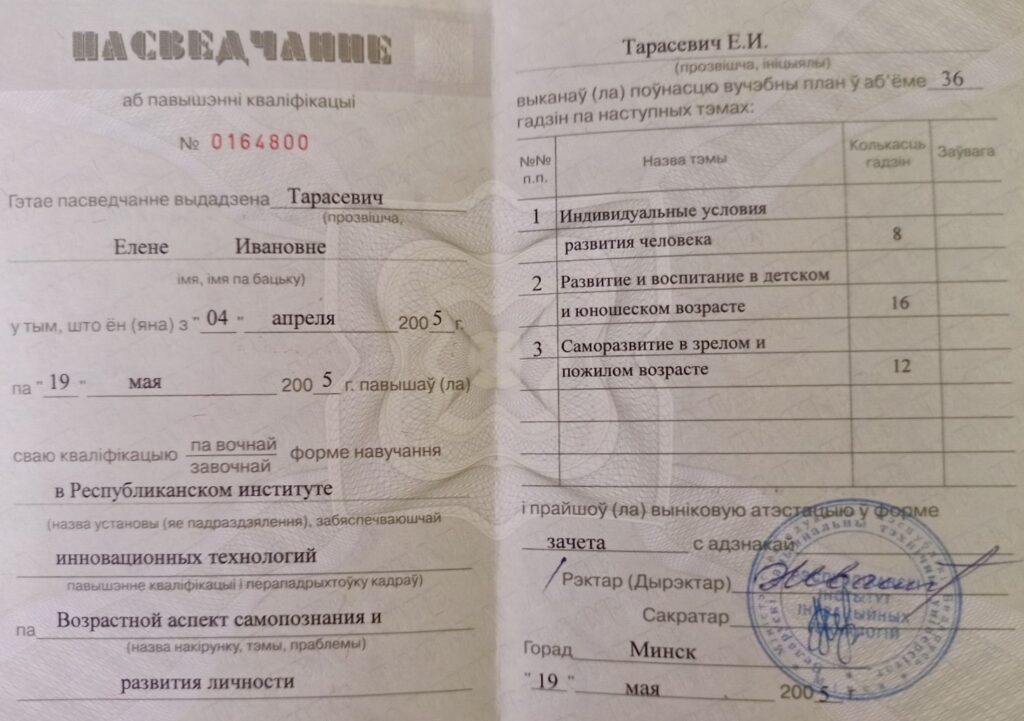 ПАСВЕДЧАННЕ
аб павышэнні кваліфікацыі
№ 0164800
Гэтае пасведчанне выдадзена Тарасевич
(прозвішча,
Елене Ивановне
імя, імя па бацьку)
у тым, што ён (яна) з "04" апреля 2005 г.
па "19" мая 2005 г. павышаў (ла)
сваю кваліфікацыю па вочнай форме навучання
завочнай
в Республиканском институте
(назва установы (яе падраздзялення), забяспечваюшчай
инновационных технологий
павышэнне кваліфікацыі і перападрыхтоўку кадраў)
па Возрастной аспект самопознания и
(назва накірунку, тэмы, праблемы)
развития личности
Тарасевич Е.И.
(прозвішча, ініцыялы)
выканаў (ла) поўнасцю вучэбны план ў аб'ёме 36
гадзін па наступных тэмах:
№№ п.п. Назва тэмы Колькасць гадзін Заўвага
1 Индивидуальные условия
развития человека 8
2 Развитие и воспитание в детском
и юношеском возрасте 16
3 Саморазвитие в зрелом и
пожилом возрасте 12
і прайшоў (ла) выніковую атэстацыю ў форме
зачета с адзнакай
Рэктар (Дырэктар)
Сакратар
Горад Минск
"19" мая 2005 г.